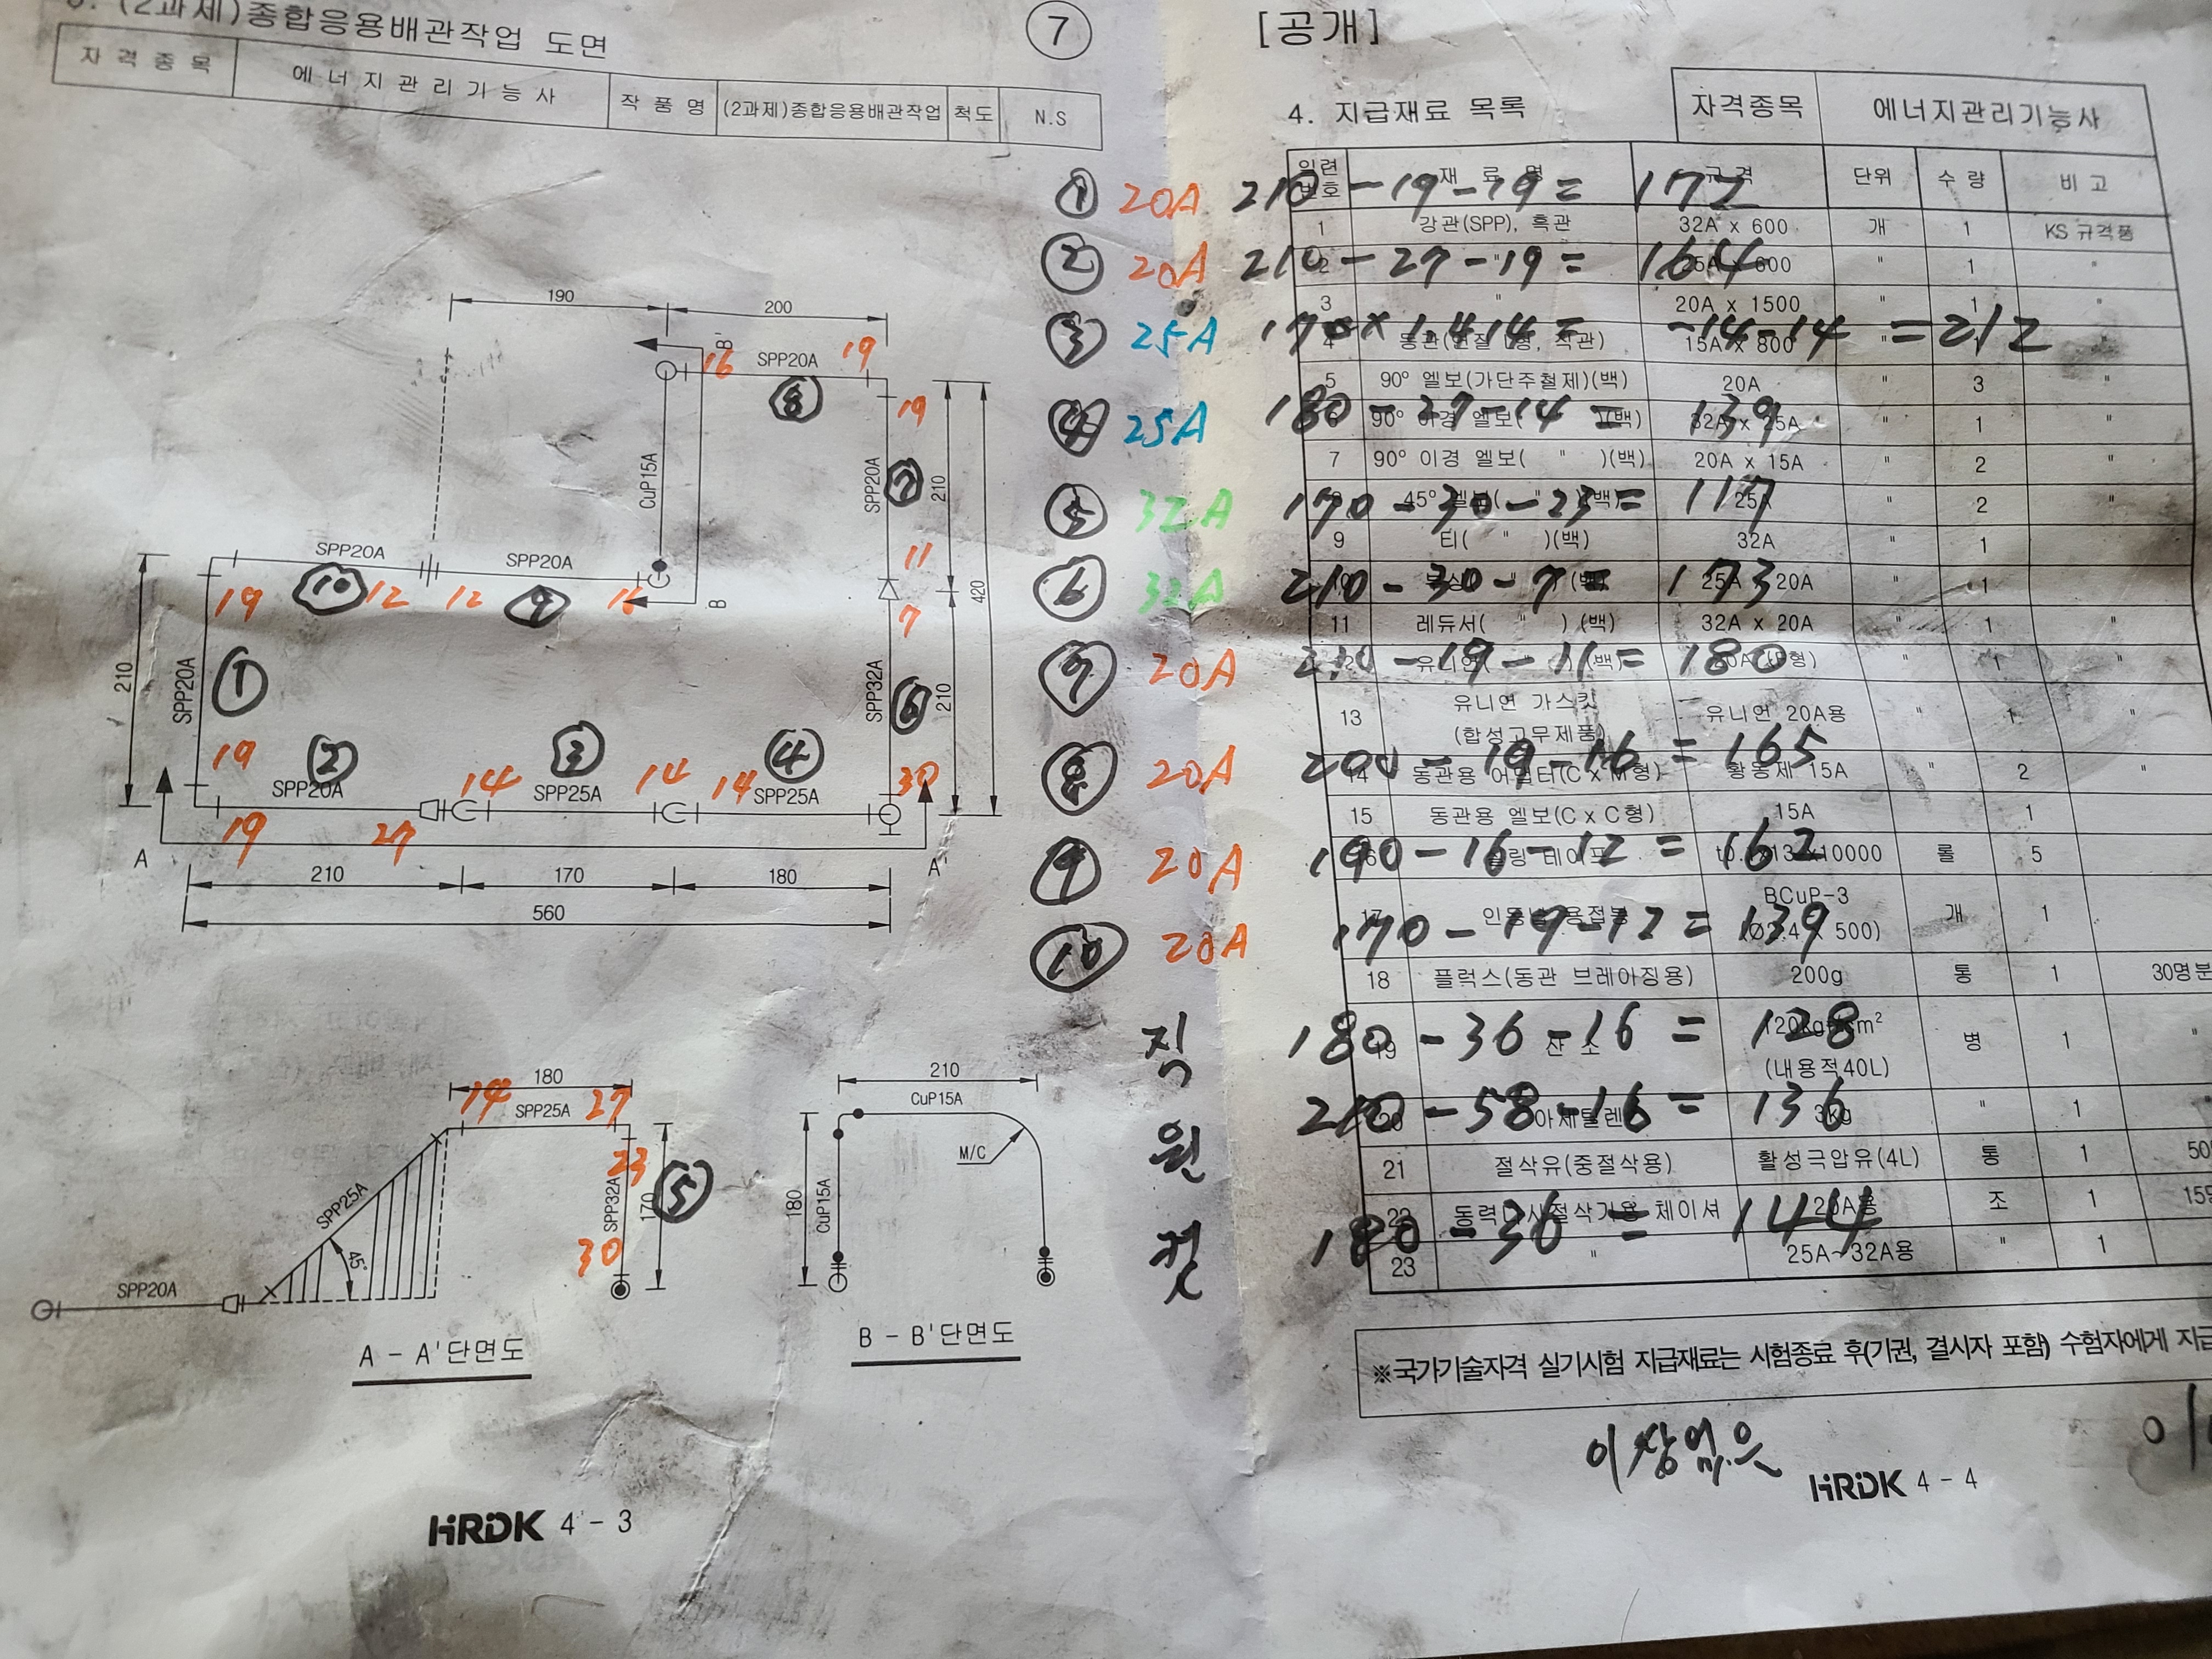 (2과제)종합응용배관작업 도면
⑦
자 격 종 목
에 너 지 관 리 기 능 사
작 품 명
(2과제)종합응용배관작업
척도
N.S
190
200
B'
16
SPP20A
19
⑧
19
CuP15A
SPP20A
⑦
210
420
SPP20A
SPP20A
11
19
⑩
12
12
⑨
16
B
7
210
SPP20A
①
SPP32A
⑥
210
19
②
③
④
SPP20A
14
SPP25A
14
14
SPP25A
30
19
27
A
A'
210
170
180
560
180
14
SPP25A
27
23
SPP32A
170
⑤
30
SPP25A
45°
SPP20A
A - A'단면도
210
CuP15A
M/C
180
CuP15A
B - B'단면도
HRDK 4 - 3
① 20A 210 - 19 - 19 = 172
② 20A 210 - 27 - 19 = 164
③ 25A 170 x 1.414 = -14-14 = 212
④ 25A 180 - 27 - 14 = 139
⑤ 32A 170 - 30 - 23 = 117
⑥ 32A 210 - 30 - 7 = 173
⑦ 20A 210 - 19 - 11 = 180
⑧ 20A 200 - 19 - 16 = 165
⑨ 20A 190 - 16 - 12 = 162
⑩ 20A 170 - 19 - 12 = 139
직 180 - 36 - 16 = 128
원 210 - 58 - 16 = 136
컷 180 - 36 = 144
[공개]
4. 지급재료 목록
자격종목
에너지관리기능사
일련번호 재 료 명 규 격 단위 수 량 비 고
1 강관(SPP), 흑관 32A x 600 개 1 KS 규격품
2 " 25A x 600 " 1 "
3 " 20A x 1500 " 1 "
4 15A x 800 "
5 90° 엘보(가단주철제)(백) 20A " 3 "
90° 이경 엘보( " )(백) 32A x 25A " 1 "
7 90° 이경 엘보( " )(백) 20A x 15A " 2 "
45° 엘보( " )(백) 25A " 2
9 티( " )(백) 32A " 1
25A 20A " 1 "
11 레듀서( " ) (백) 32A x 20A " 1 "
유니언( " ) (백) " 1 "
13 유니언 가스킷
(합성고무제품) 유니언 20A용 " 1 "
14 동관용 어댑터(C x M형) 황동제 15A " 2 "
15 동관용 엘보(C x C형) 15A " 1
10000 롤 5
17 BCuP-3
500) 개 1
18 플럭스(동관 브레이징용) 200g 통 1 30명분
19 산 소
(내용적40L) 병 1 "
아세틸렌 3kg " 1
21 절삭유(중절삭용) 활성극압유(4L) 통 1 50
체이셔 20A용 조 1
23 " 25A~32A용 " 1
※국가기술자격 실기시험 지급재료는 시험종료 후(기권, 결시자 포함) 수험자에게 지급
이상없음
HRDK 4 - 4